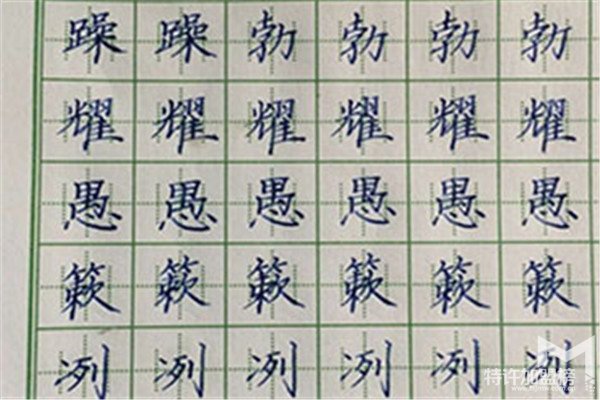 躁躁勃勃勃勃
耀耀耀耀耀耀
愚愚愚愚愚愚
簌簌簌簌簌簌
冽冽冽冽冽冽
特许加盟榜